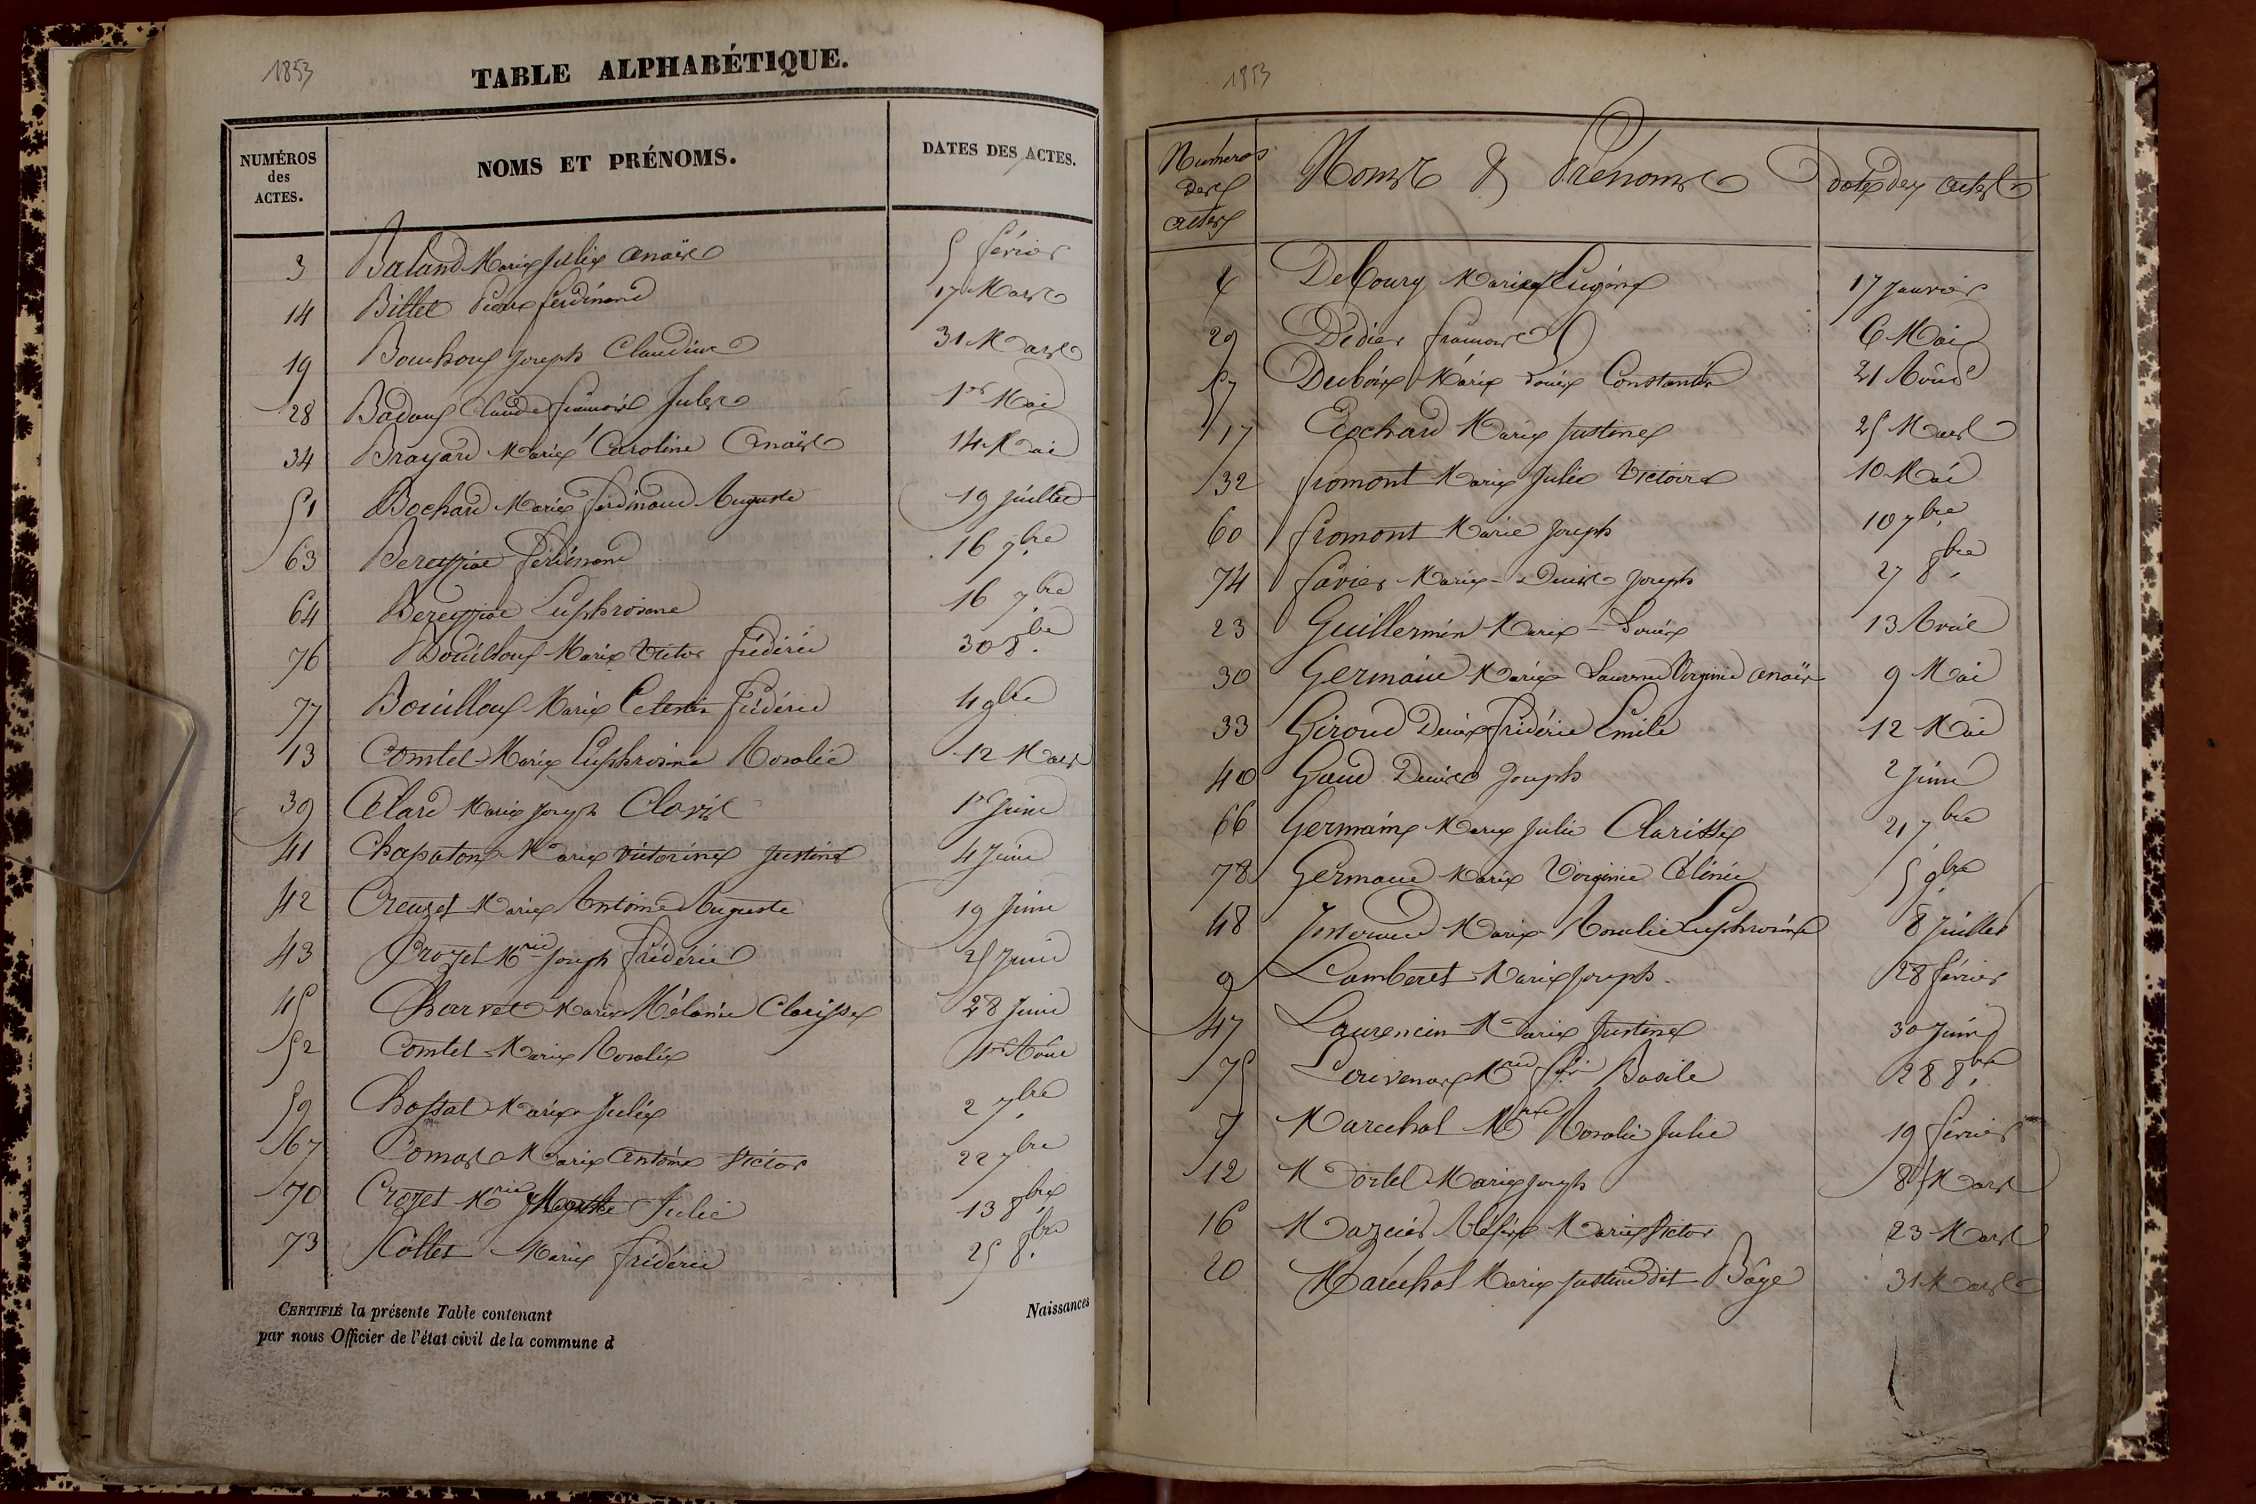 1853
TABLE ALPHABÉTIQUE.
NUMÉROS
des
ACTES.
NOMS ET PRÉNOMS.
DATES DES ACTES.
3 Baland Marie Julie Anaïs 5 février
14 Billet Pierre ferdinand 17 Mars
19 Bouchoux Joseph Claudius 31 Mars
28 Badoux Claude françois Jules 1er Mai
34 Brayard Marie Caroline Anaïs 14 Mai
51 Bochard Marie ferdinand Auguste 19 Juillet
63 Bereyziat ferdinand 16 7bre
64 Bereyziat Euphrosine 16 7bre
76 Bouilloux Marie Victor frédéric 30 8bre
77 Bouilloux Marie Celestin frédéric 4 9bre
13 Comtet Marie Euphrosine Rosalie 12 Mars
39 Célard Marie Joseph Clovis 1er Juin
41 Chapaton Marie Victorine Justine 4 Juin
42 Creuzet Marie Antoine Auguste 19 Juin
43 Crozet Mrie Joseph frédéric 25 Juin
45 Charvet Marie Mélanie Clarisse 28 Juin
52 Comtet Marie Rosalie 1er Août
59 Chossat Marie Julie 2 7bre
67 Comas Marie Antoine Victor 22 7bre
70 Crozet Mrie Julie 13 8bre
73 Collet Marie frédéric 25 8bre
CERTIFIÉ la présente Table contenant Naissances
par nous Officier de l'état civil de la commune d
1853
Numéros
des
actes
Noms & Prénoms
dates des actes
Marie Eugénie 17 Janvier
29 Didier françois 6 Mai
57 Dubois Marie Louise Constantin 21 Août
17 Marie Justine 25 Mars
32 fromont Marie Julie Victoire 10 Mai
60 fromont Marie Joseph 10 7bre
74 favier Marie Denis Joseph 27 8bre
23 Guillermin Marie Louise 13 Avril
30 Germain Marie Laurence Virginie Anaïs 9 Mai
33 Giroud Denis frédéric Emile 12 Mai
40 Gaud Denis Joseph 2 Juin
66 Germain Marie Julie Clarisse 21 7bre
78 Germain Marie Virginie Célinie 5 9bre
48 Josserand Marie Rosalie Euphrosine 8 Juillet
9 Lamberet Marie Joseph 28 février
47 Laurencin Marie Justine 30 Juin
75 Mrie Basile 28 8bre
7 Marechal Mrie Rosalie Julie 19 février
12 Mortel Marie Joseph 8 Mars
16 Mazuir Marie Victor 23 Mars
20 Maréchal Marie Justin dit Bâgé 31 Mars